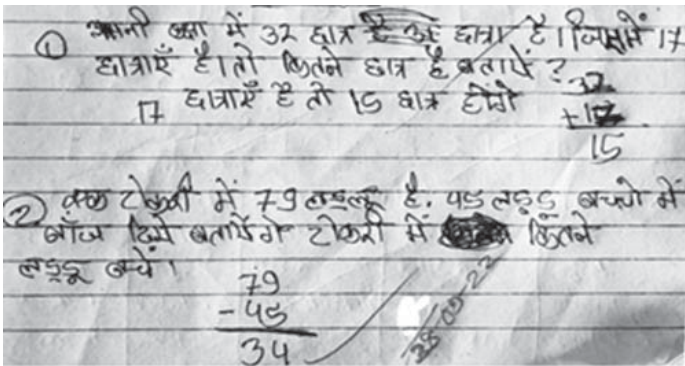 ① अपनी कक्षा में 32 छात्र है छात्रा है। जिसमें 17
छात्राएँ है। तो कितने छात्र है बतायें?
17 छात्राएँ है तो 15 छात्र होंगे
32
+17
15
② एक टोकरी में 79 लड्डू है. 45 लड्डू बच्चो में
बाँट दिये बतायेंगे टोकरी में कितने
लड्डू बचें।
79
-45
34